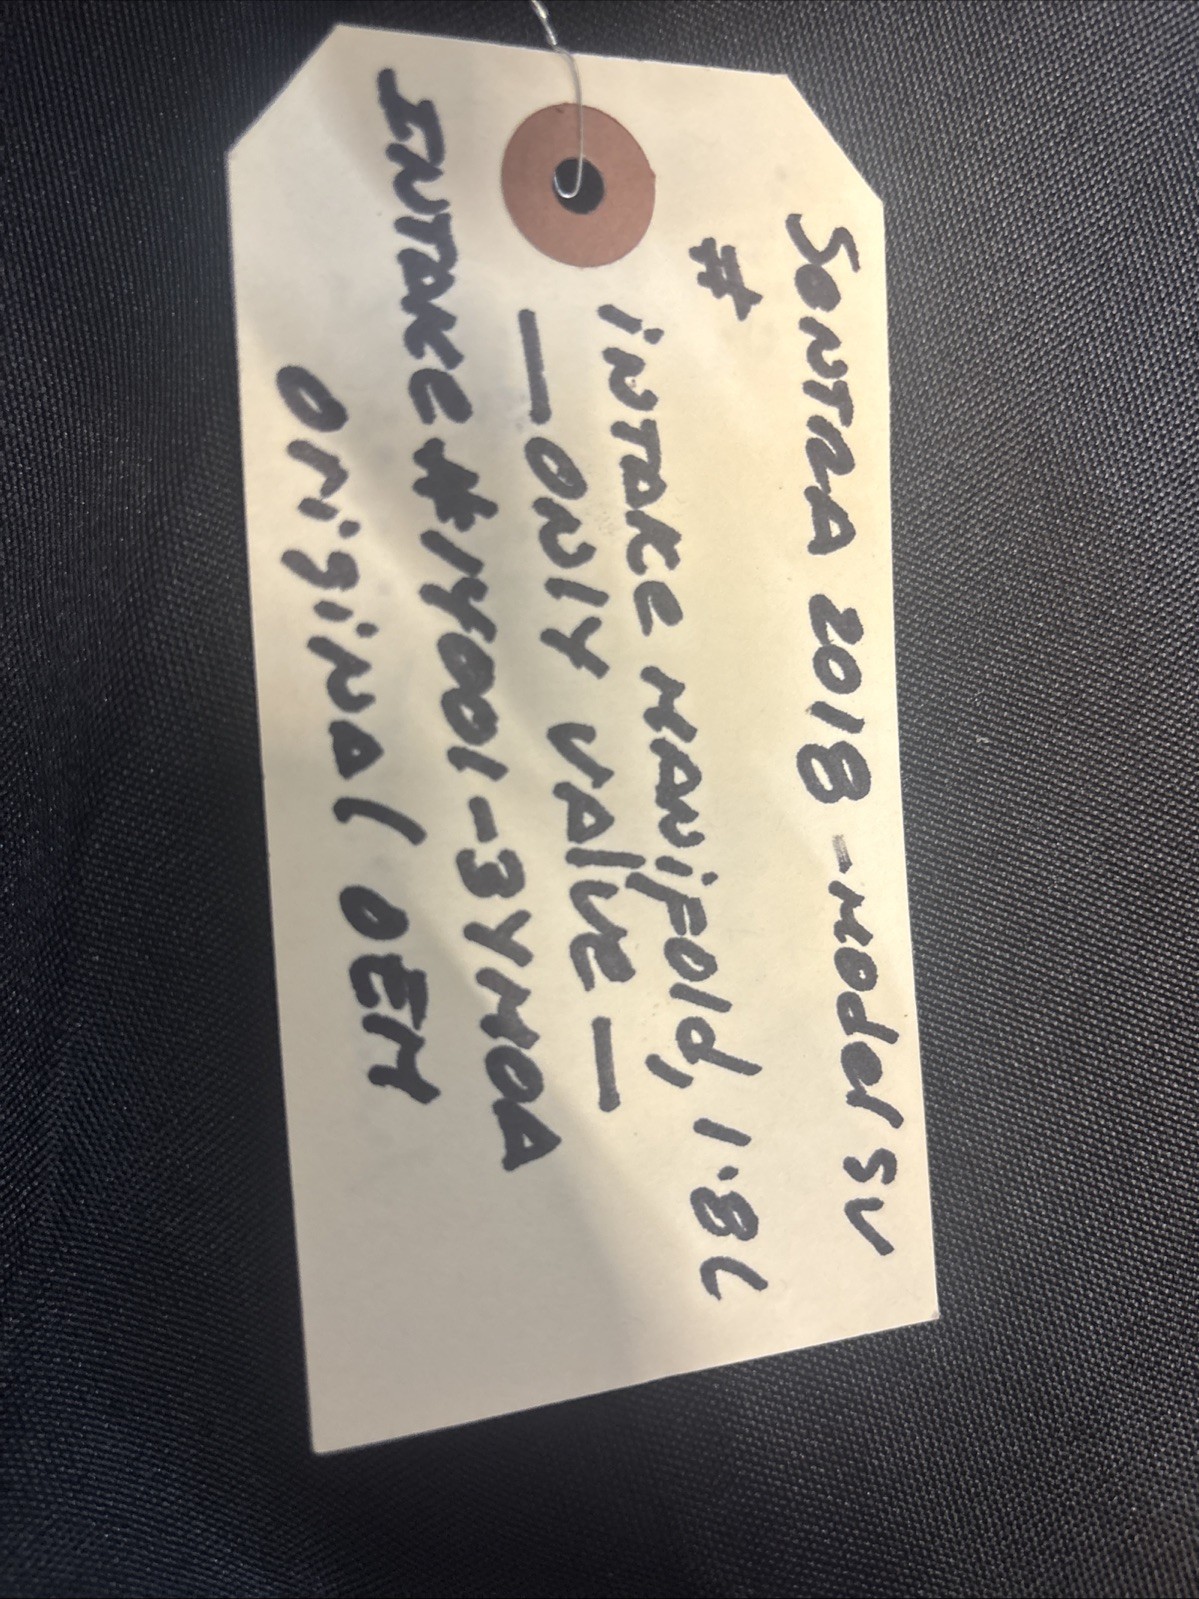 SENTRA 2018 - model SV
#
iNTAKE MANiFOld, 1.8L
— ONlY VAlVE —
INTAKE # 14001-3YMOA
ORiginAl OEM